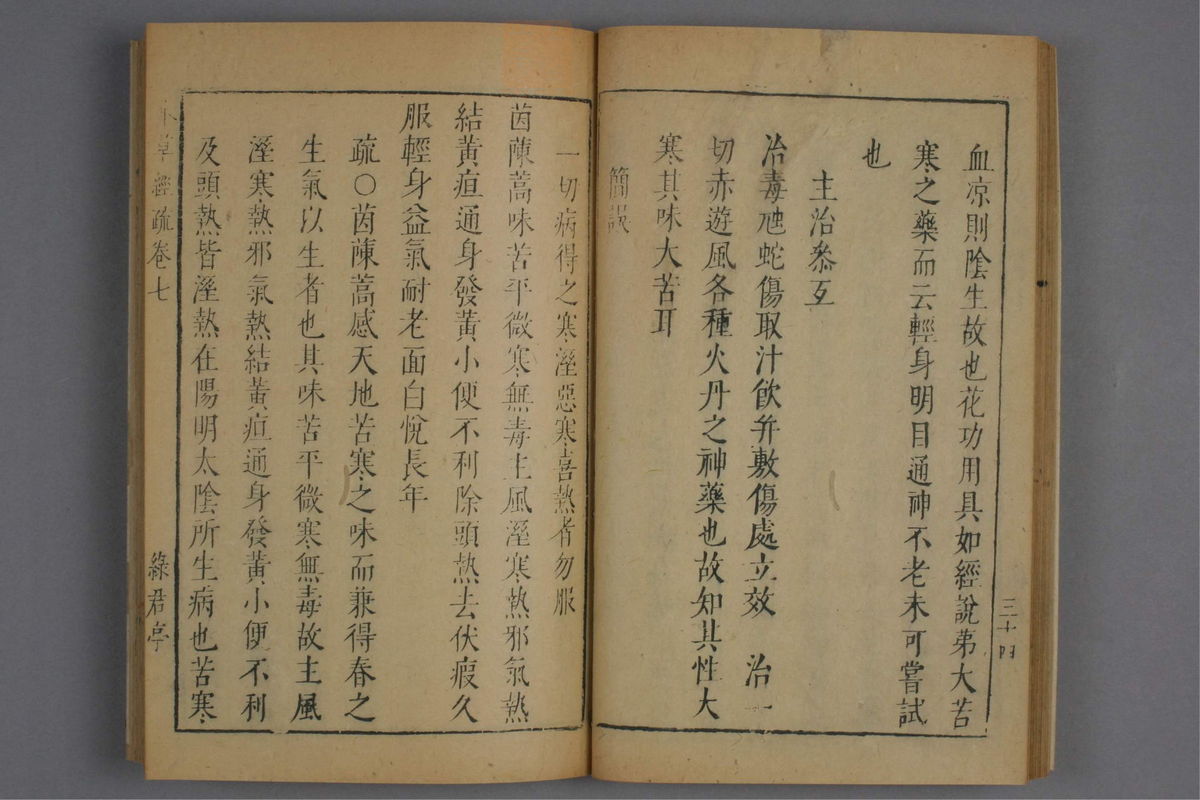 三十四
血凉則陰生故也花功用具如經說弟大苦
寒之藥而云輕身明目通神不老未可嘗試
也
主治叅互
治毒虺蛇傷取汁飲并敷傷處立效　治一
切赤遊風各種火丹之神藥也故知其性大
寒其味大苦耳
簡誤
一切病得之寒溼惡寒喜熱者勿服
茵蔯蒿味苦平微寒無毒主風溼寒熱邪氣熱
結黃疸通身發黃小便不利除頭熱去伏瘕久
服輕身益氣耐老面白悅長年
疏〇茵蔯蒿感天地苦寒之味而兼得春之
生氣以生者也其味苦平微寒無毒故主風
溼寒熱邪氣熱結黃疸通身發黃小便不利
及頭熱皆溼熱在陽明太陰所生病也苦寒
本草經疏卷七
綠君亭